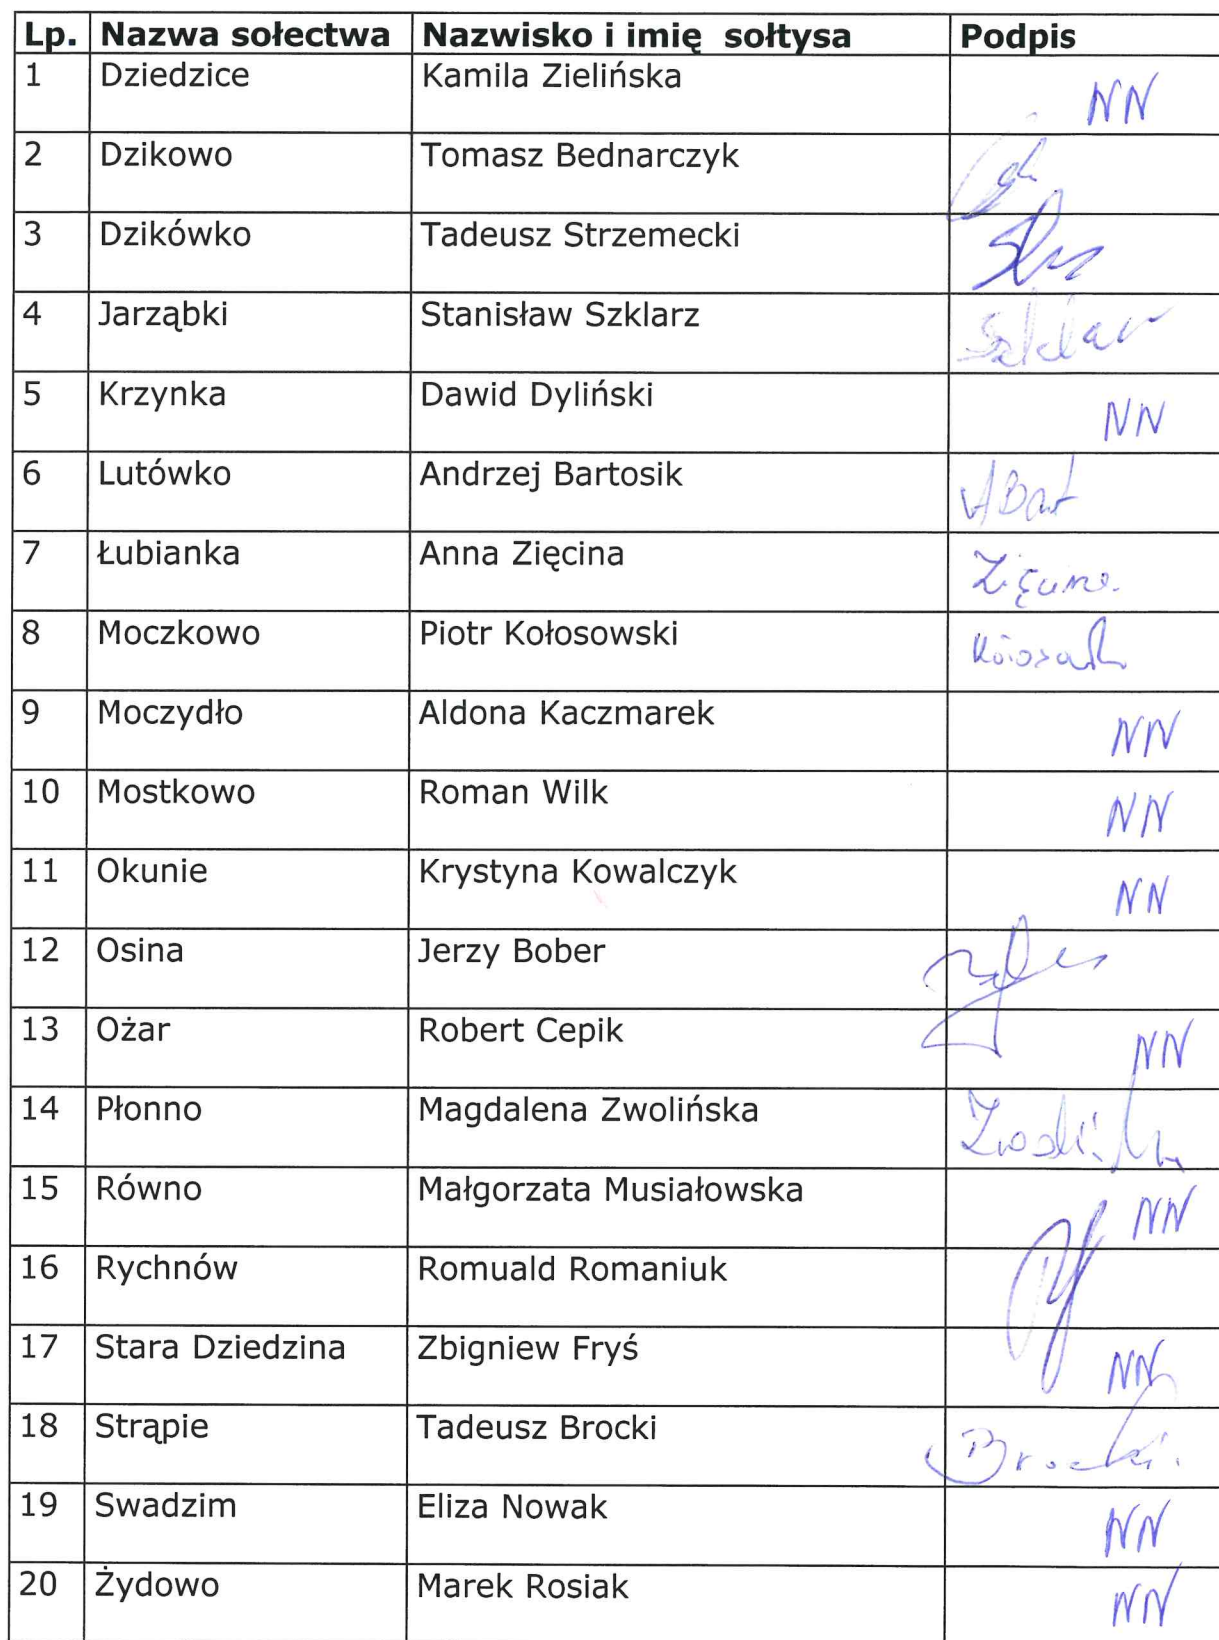 Lp. Nazwa sołectwa Nazwisko i imię sołtysa Podpis
1 Dziedzice Kamila Zielińska NN
2 Dzikowo Tomasz Bednarczyk
3 Dzikówko Tadeusz Strzemecki
4 Jarząbki Stanisław Szklarz Szklarz
5 Krzynka Dawid Dyliński NN
6 Lutówko Andrzej Bartosik ABart
7 Łubianka Anna Zięcina Zięcina
8 Moczkowo Piotr Kołosowski
9 Moczydło Aldona Kaczmarek NN
10 Mostkowo Roman Wilk NN
11 Okunie Krystyna Kowalczyk NN
12 Osina Jerzy Bober
13 Ożar Robert Cepik NN
14 Płonno Magdalena Zwolińska
15 Równo Małgorzata Musiałowska NN
16 Rychnów Romuald Romaniuk
17 Stara Dziedzina Zbigniew Fryś NN
18 Strąpie Tadeusz Brocki Brocki
19 Swadzim Eliza Nowak NN
20 Żydowo Marek Rosiak NN